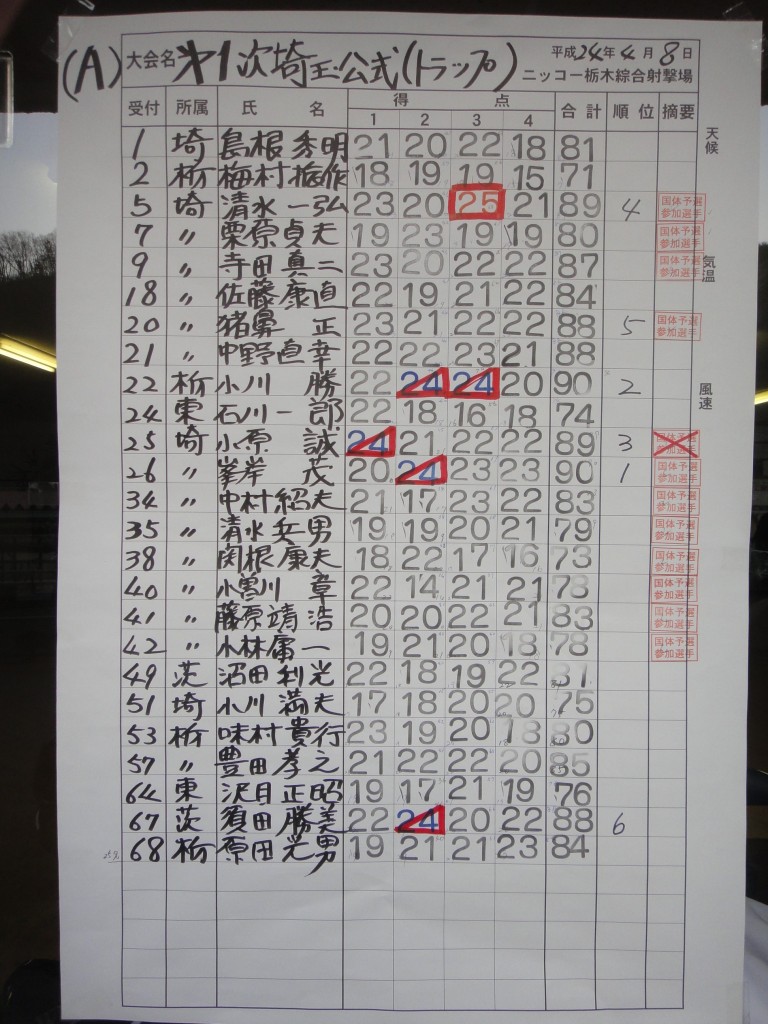 (A) 大会名 第1次埼玉公式(トラップ) 平成24年4月8日
ニッコー栃木綜合射撃場
受付 所属 氏名 得点 合計 順位 摘要
1 2 3 4
天候
1 埼 島根秀明 21 20 22 18 81
2 栃 梅村 作 18 19 19 15 71
5 埼 清水一弘 23 20 25 21 89 4 国体予選参加選手
7 〃 栗原貞夫 19 23 19 19 80 国体予選参加選手
9 〃 寺田真二 23 20 22 22 87 国体予選参加選手
気温
18 〃 佐藤康直 22 19 21 22 84
20 〃 猪鼻 正 23 21 22 22 88 5 国体予選参加選手
21 〃 中野直幸 22 22 23 21 88
22 栃 小川 勝 22 24 24 20 90 2
風速
24 東 石川一郎 22 18 16 18 74
25 埼 小原 誠 24 21 22 22 89 3 国体予選参加選手
26 〃 峯岸 茂 20 24 23 23 90 1 国体予選参加選手
34 〃 中村紹夫 21 17 23 22 83 国体予選参加選手
35 〃 清水兵男 19 19 20 21 79 国体予選参加選手
38 〃 関根康夫 18 22 17 16 73 国体予選参加選手
40 〃 小曽川 章 22 14 21 21 78 国体予選参加選手
41 〃 藤原靖浩 20 20 22 21 83 国体予選参加選手
42 〃 小林庸一 19 21 20 18 78 国体予選参加選手
49 茨 沼田利光 22 18 19 22 81
51 埼 小川満夫 17 18 20 20 75
53 栃 味村貴行 23 19 20 18 80
57 〃 豊田孝之 21 22 22 20 85
64 東 沢目正昭 19 17 21 19 76
67 茨 須田勝美 22 24 20 22 88 6
68 栃 原田光男 19 21 21 23 84